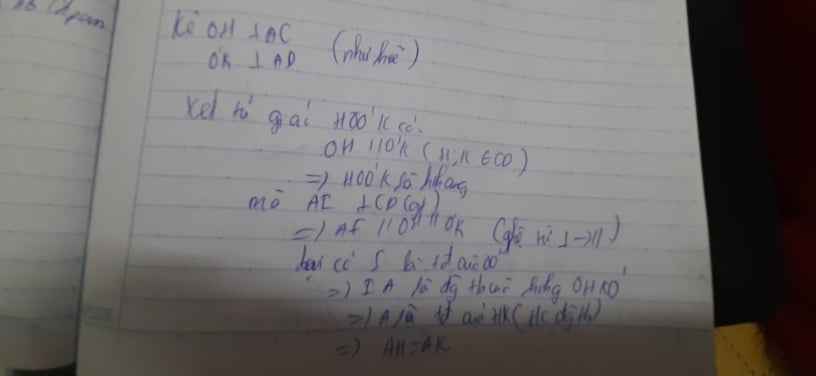 Kẻ OH ⊥ AC
O'K ⊥ AD (như hình)
Xét tứ giác HOO'K có:
OH // O'K (H, K ∈ CD)
=> HOO'K là hthang
mà AI ⊥ CD (gt)
=> AI // OH // O'K (qhệ từ ⊥ -> //)
lại có I là tđ của OO'
=> IA là đg tb của hthg OHKO'
=> A là tđ của HK
=> AH = AK